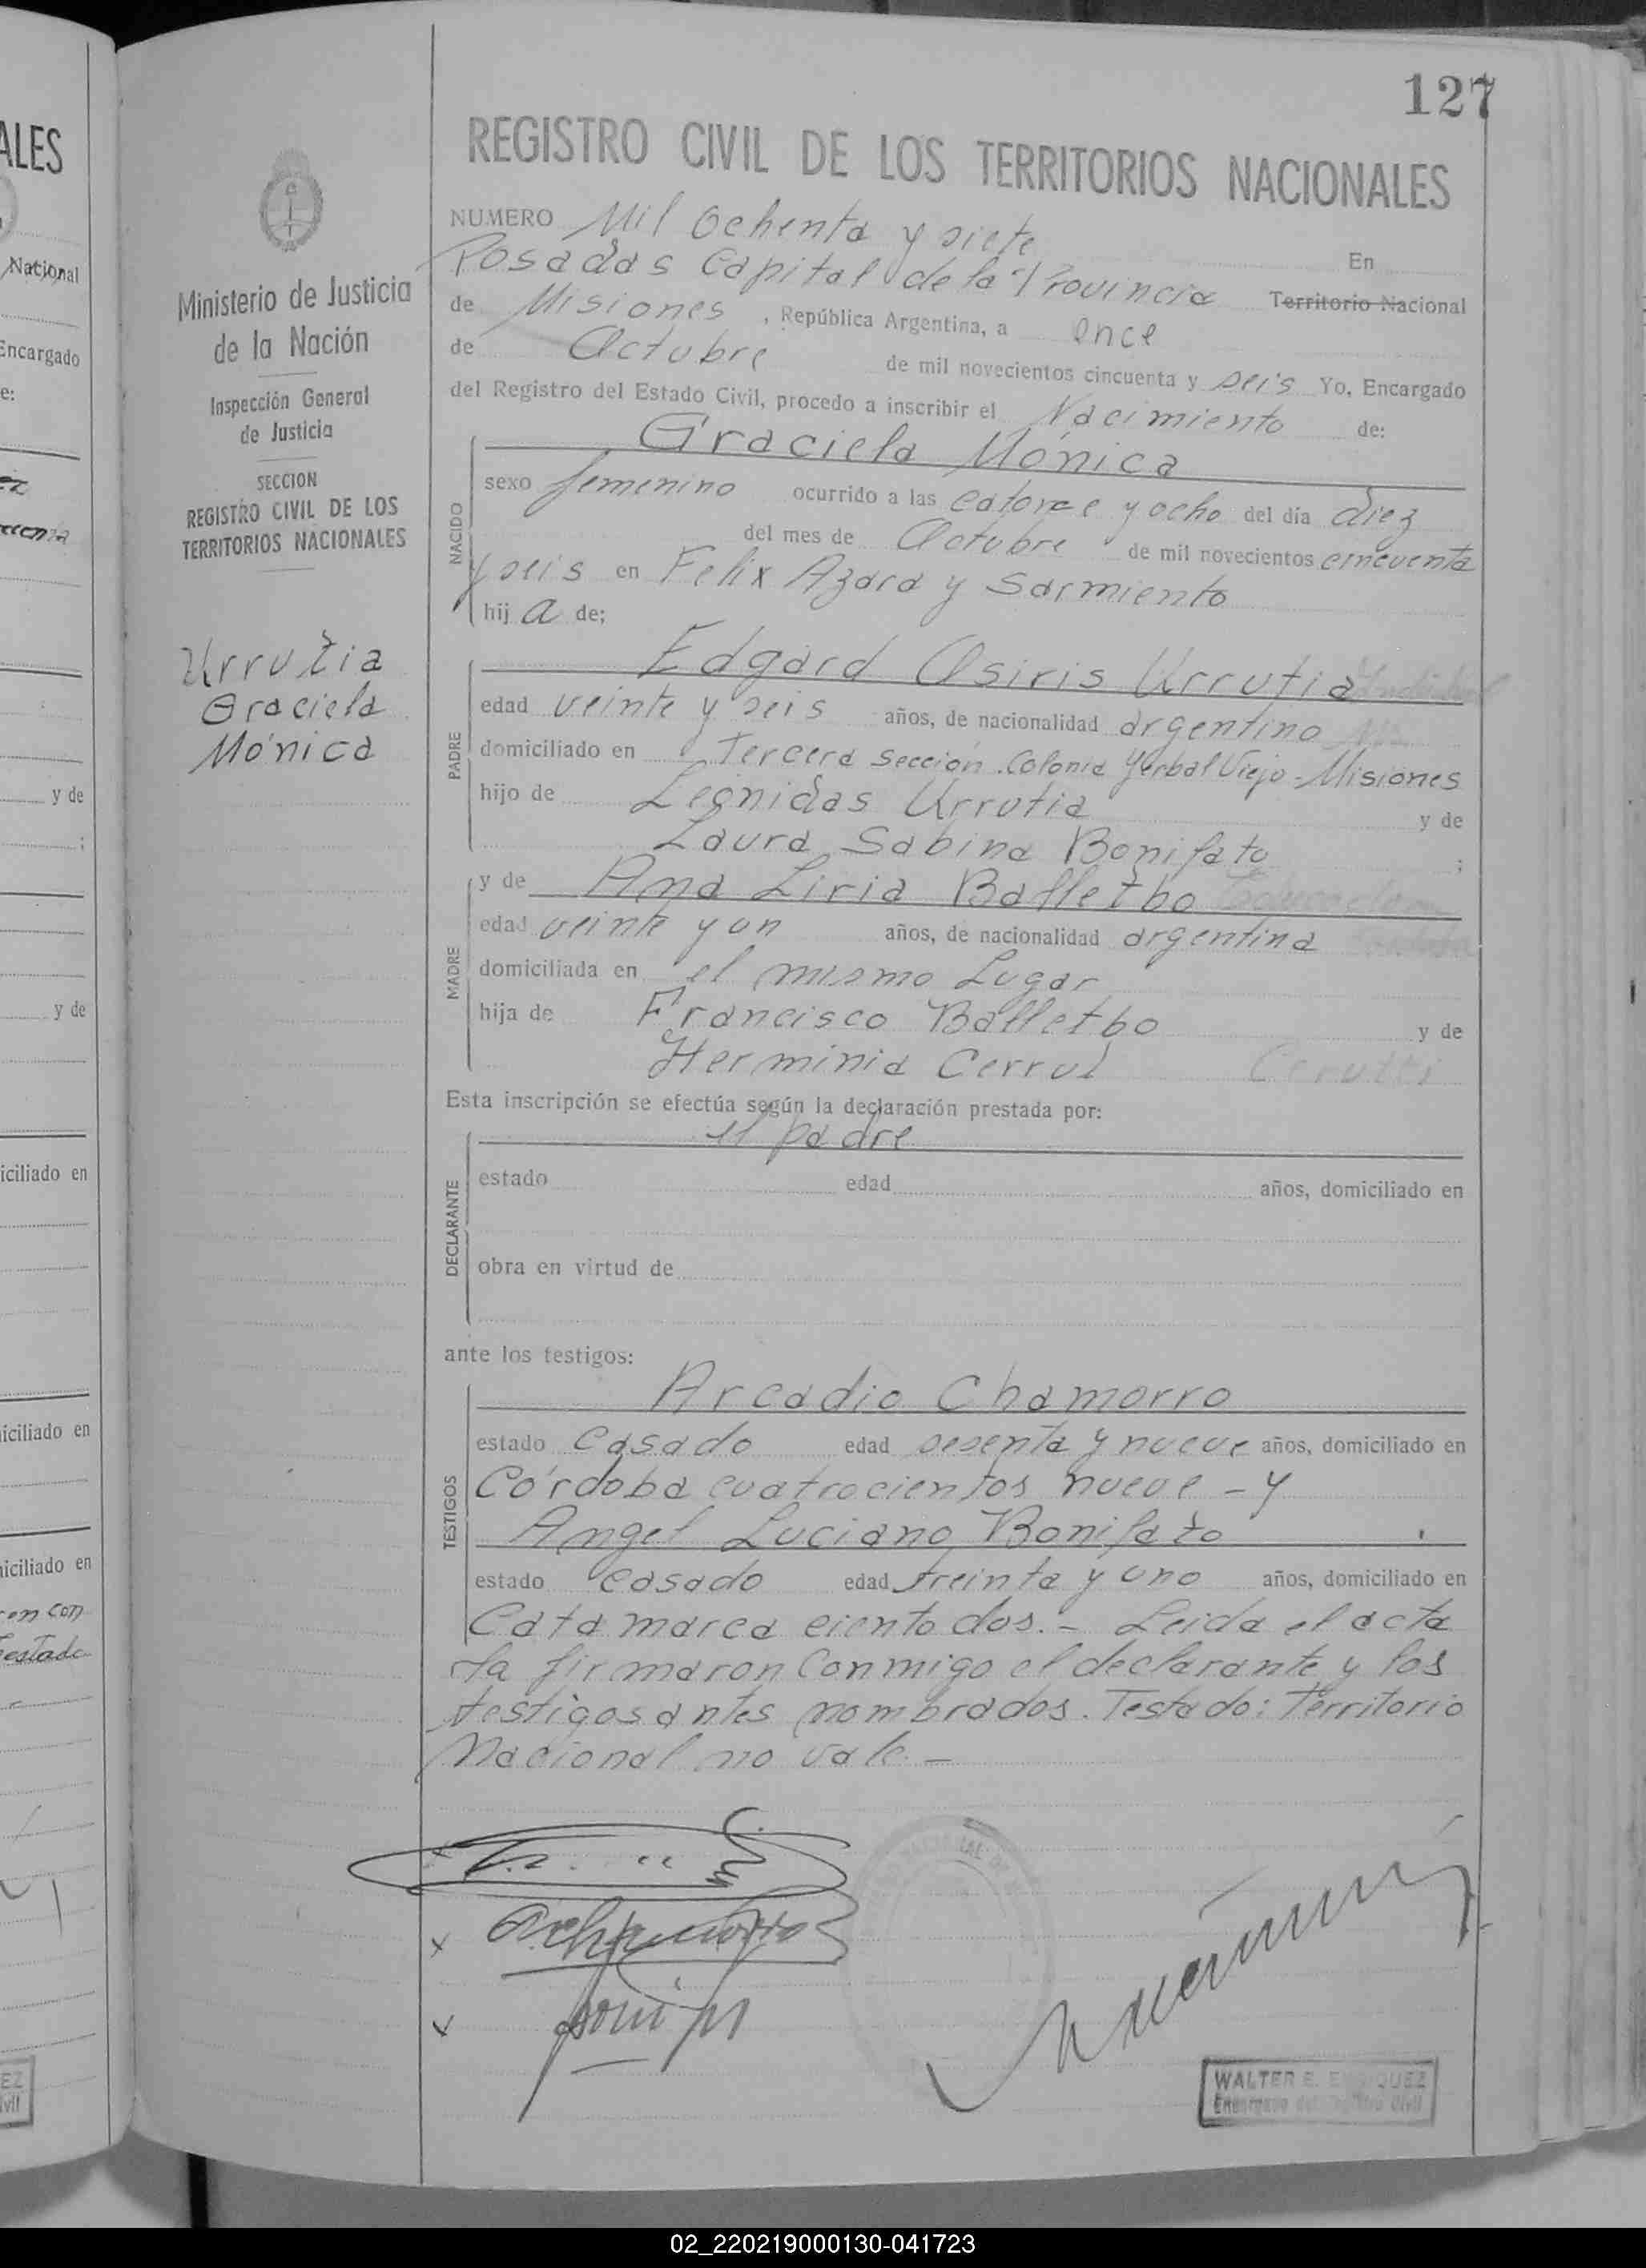 127
REGISTRO CIVIL DE LOS TERRITORIOS NACIONALES
Ministerio de Justicia
de la Nación
Inspección General
de Justicia
SECCION
REGISTRO CIVIL DE LOS
TERRITORIOS NACIONALES
Urrutia
Graciela
Mónica
NUMERO Mil Ochenta y siete
En
Posadas Capital de la Provincia Territorio Nacional
de Misiones, República Argentina, a once
de Octubre de mil novecientos cincuenta y seis Yo, Encargado
del Registro del Estado Civil, procedo a inscribir el Nacimiento de:
NACIDO
Graciela Mónica
sexo femenino ocurrido a las catorce y ocho del día diez
del mes de Octubre de mil novecientos cincuenta
y seis en Felix Azara y Sarmiento
hij a de;
PADRE
Edgard Osiris Urrutia
edad veinte y seis años, de nacionalidad argentino
domiciliado en Tercera Sección Colonia Yerbal Viejo - Misiones
hijo de Leonidas Urrutia y de
Laura Sabina Bonifato ;
MADRE
y de Ana Liria Balletbo
edad veinte y un años, de nacionalidad argentina
domiciliada en el mismo Lugar
hija de Francisco Balletbo y de
Herminia Cerrul Cerutti
Esta inscripción se efectúa según la declaración prestada por:
DECLARANTE
el padre
estado edad años, domiciliado en
obra en virtud de
ante los testigos:
TESTIGOS
Arcadio Chamorro
estado Casado edad sesenta y nueve años, domiciliado en
Córdoba cuatrocientos nueve - y
Angel Luciano Bonifato
estado casado edad treinta y uno años, domiciliado en
Catamarca ciento dos. - Leida el acta
la firmaron conmigo el declarante y los
testigos antes nombrados. Testado: Territorio
Nacional no vale. -
WALTER E. ENRIQUEZ
Encargado del Registro Civil
ALES
Nacional
Encargado
e:
y de
;
y de
iciliado en
iciliado en
iciliado en
en con
Testado
EZ
ivil
02_220219000130-041723